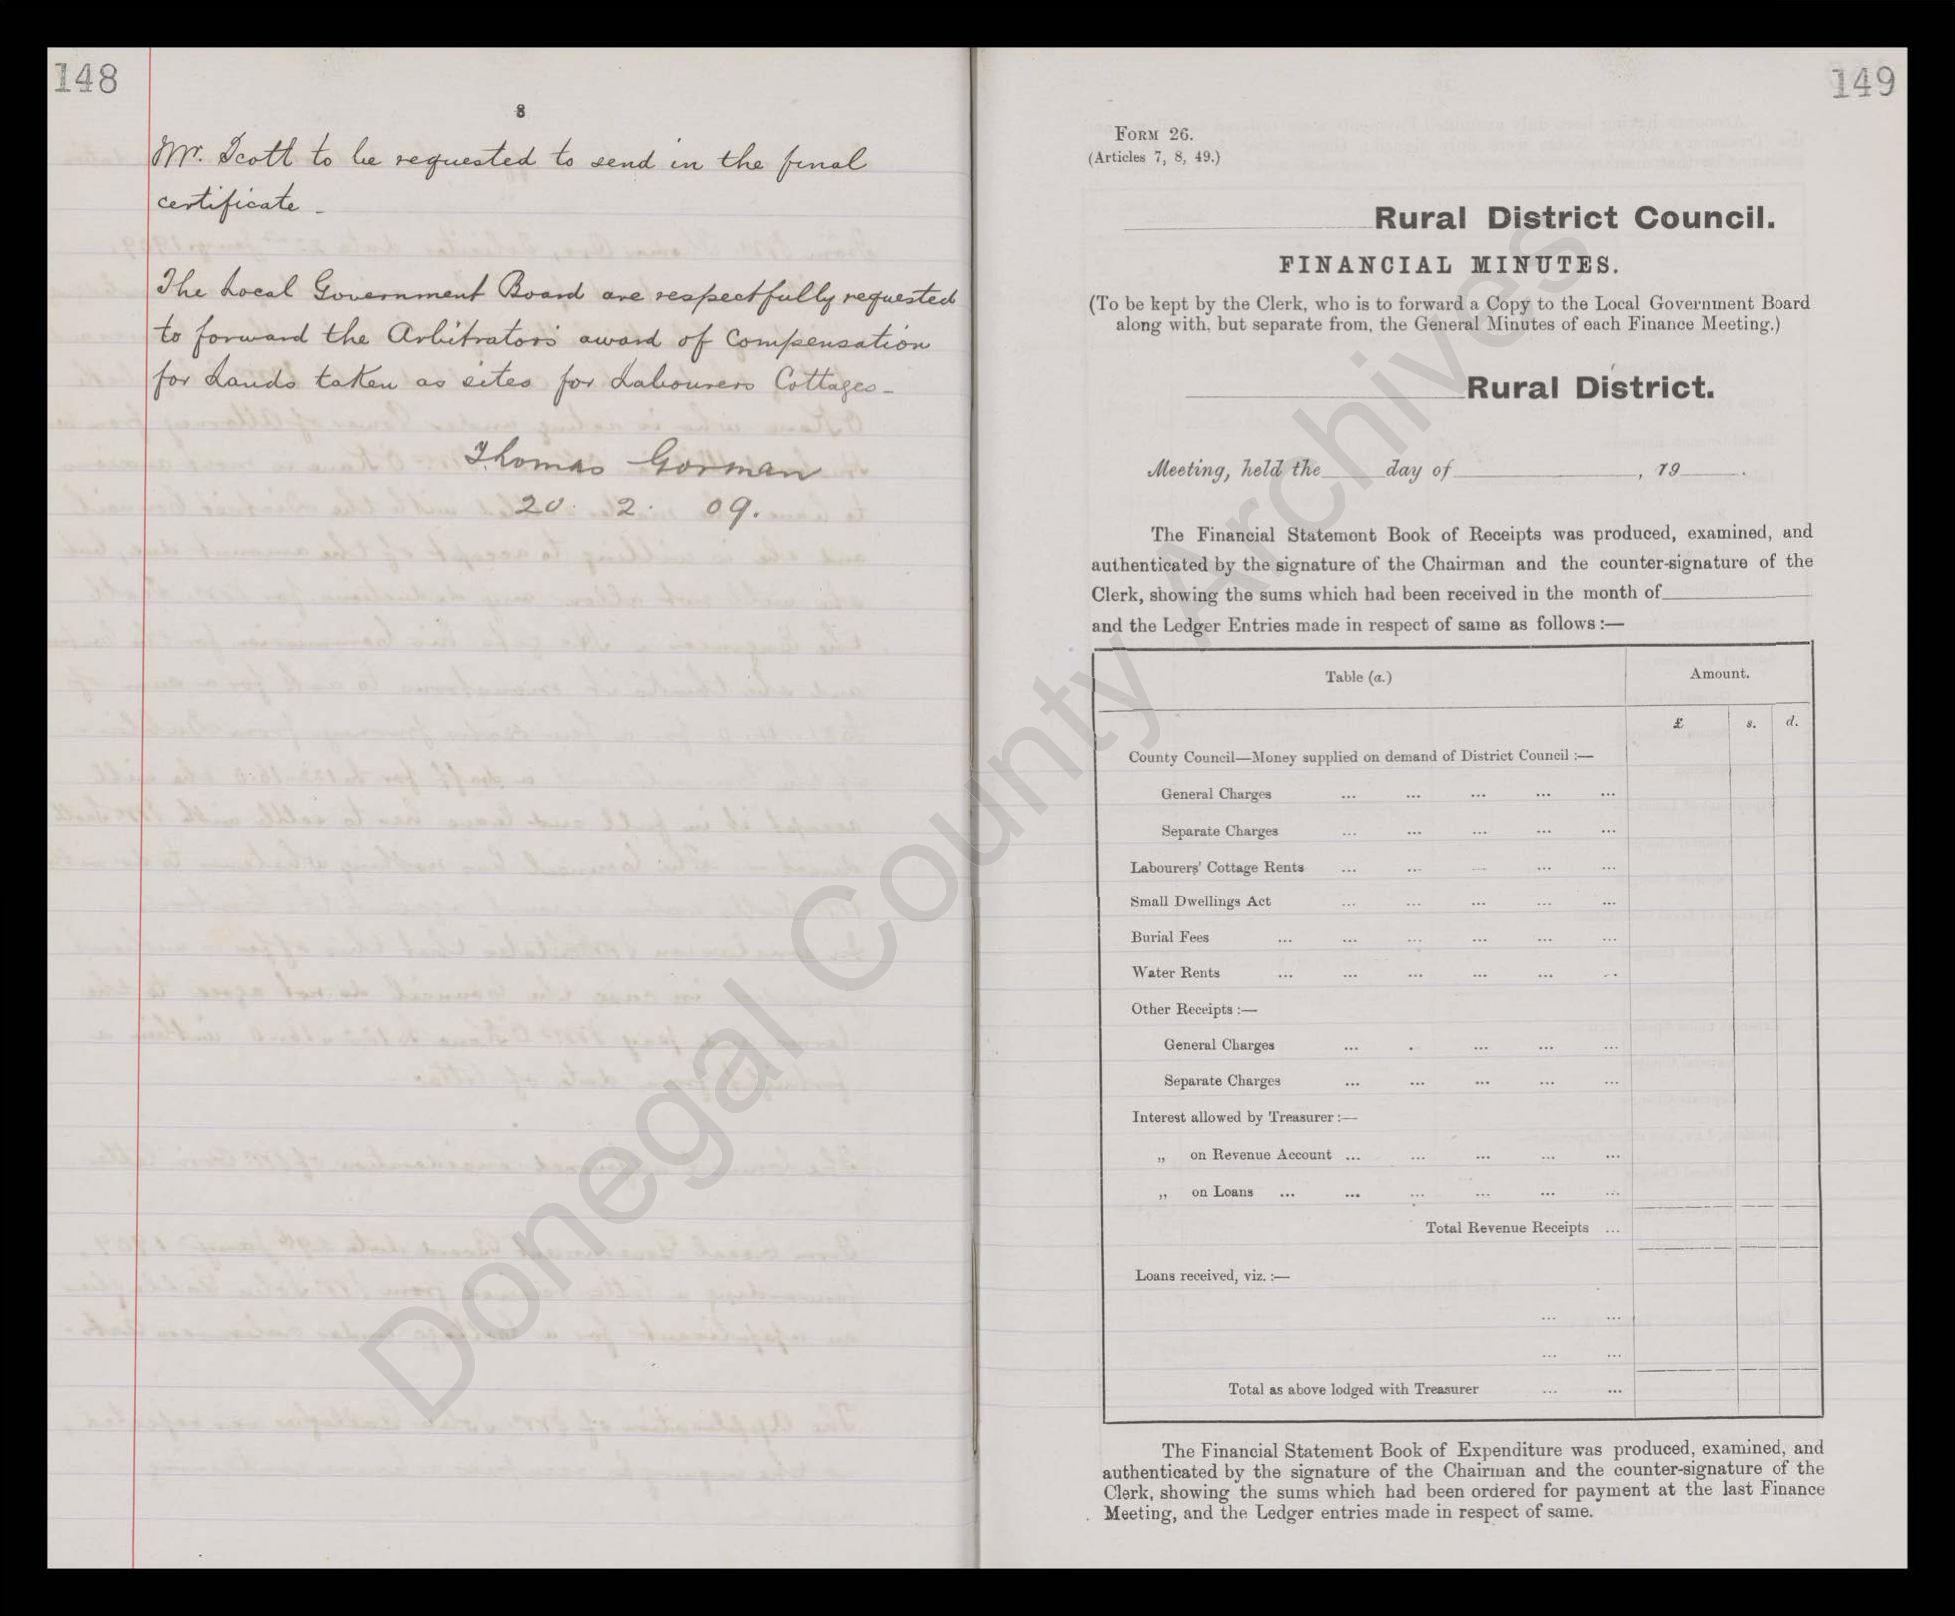 148
8
Mr. Scott to be requested to send in the final
certificate -
The Local Government Board are respectfully requested
to forward the Arbitrator's award of Compensation
for Lands taken as sites for Labourers Cottages -
Thomas Gorman
20. 2. 09.
149
FORM 26.
(Articles 7, 8, 49.)
Rural District Council.
FINANCIAL MINUTES.
(To be kept by the Clerk, who is to forward a Copy to the Local Government Board
along with, but separate from, the General Minutes of each Finance Meeting.)
Rural District.
Meeting, held the day of , 19 .
The Financial Statement Book of Receipts was produced, examined, and
authenticated by the signature of the Chairman and the counter-signature of the
Clerk, showing the sums which had been received in the month of
and the Ledger Entries made in respect of same as follows :—
Table (a.) Amount.
£ s. d.
County Council—Money supplied on demand of District Council :—
General Charges ... ... ... ... ...
Separate Charges ... ... ... ... ...
Labourers' Cottage Rents ... ... ... ... ...
Small Dwellings Act ... ... ... ... ...
Burial Fees ... ... ... ... ... ...
Water Rents ... ... ... ... ... ...
Other Receipts :—
General Charges ... . ... ... ...
Separate Charges ... ... ... ... ...
Interest allowed by Treasurer :—
„ on Revenue Account ... ... ... ... ...
„ on Loans ... ... ... ... ... ...
Total Revenue Receipts ...
Loans received, viz. :—
... ...
... ...
Total as above lodged with Treasurer ... ...
The Financial Statement Book of Expenditure was produced, examined, and
authenticated by the signature of the Chairman and the counter-signature of the
Clerk, showing the sums which had been ordered for payment at the last Finance
Meeting, and the Ledger entries made in respect of same.
Donegal County Archives